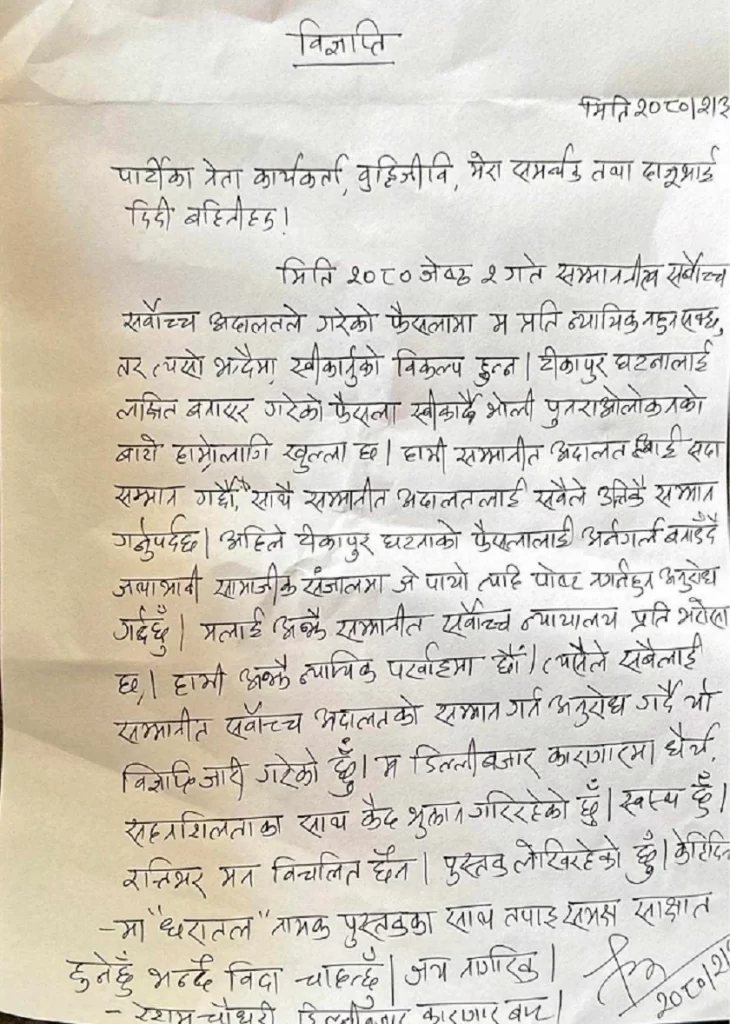 विज्ञाप्ति
मिति २०८०/२/३
पार्टीका नेता कार्यकर्ता, वुद्दिजीवि, मेरा समर्थक तथा दाजुभाई
दिदी बहिनीहरु!
मिति २०८० जेष्ठ २ गते सम्मानित सर्वोच्च
सर्वोच्च अदालतले गरेको फैसलामा म प्रति न्यायिक नहुनसक्छ,
तर त्यसो भन्दैमा स्वीकार्नुको विकल्प हुन्न। टीकापुर घटनालाई
लक्षित बनाएर गरेको फैसला स्वीकार्दै भोली पुनराओलोकनको
बाटो हाम्रोलागि खुल्ला छ। हामी सम्मानीत अदालत लाई सदा
सम्मान गर्दछौं, साथै सम्मानीत अदालतलाई सवैले उत्तिकै सम्मान
गर्नुपर्दछ। अहिले टीकापुर घटनाको फैसलालाई अर्नगर्ल बनाउँदै
जथाभावी सामाजीक संजालमा जे पायो त्यहि पोष्ट नगर्नहुन अनुरोध
गर्दछुँ। मलाई अझै सम्मानीत सर्वोच्च न्यायालय प्रति भरोसा
छ,। हामी अझै न्यायिक पर्खाइमा छौं। त्यसैले सबैलाई
सम्मानीत सर्वोच्च अदालतको सम्मान गर्न अनुरोध गर्दै यो
विज्ञाप्ति जारी गरेको छुँ। म डिल्लीबजार कारागारमा धैर्य,
सहनशिलताका साथ कैद भुक्तान गरिरहेको छुँ। स्वस्थ छुँ।
रत्तिभर मन विचलित छैन। पुस्तक लेखिरहेको छुँ। केहिदिन
-मा "धरातल" नामक पुस्तकका साथ तपाइ समक्ष साक्षात
हुनेछुँ भन्दै विदा चाहन्छुँ। जय नागरिक।
२०८०/२/
- रेशम चौधरी डिल्लीबजार कारागार बाट।